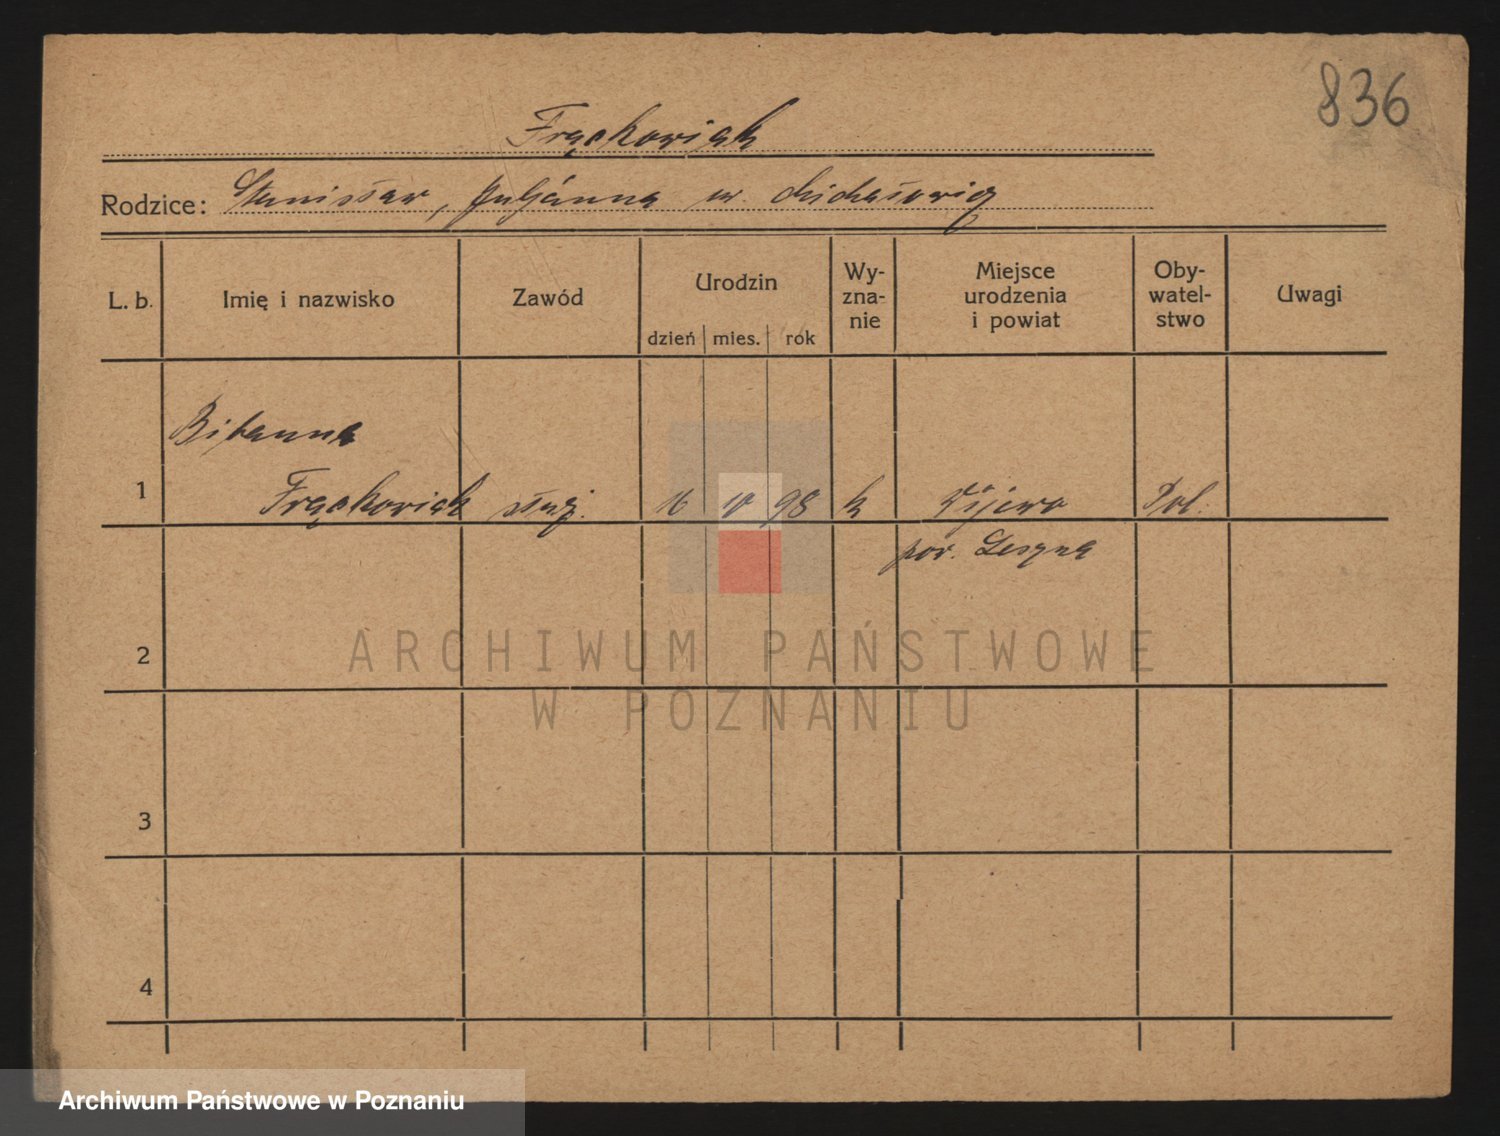 836
Frąckowiak
Rodzice: Stanisław, Juljánna ur.
L. b. Imię i nazwisko Zawód Urodzin dzień mies. rok Wy-zna-nie Miejsce urodzenia i powiat Oby-watel-stwo Uwagi
Bibanna
1 Frąckowiak służ. 16 10 98 k Wijewo Pol.
pow. Leszna
2
3
4
ARCHIWUM PAŃSTWOWE
W POZNANIU
Archiwum Państwowe w Poznaniu